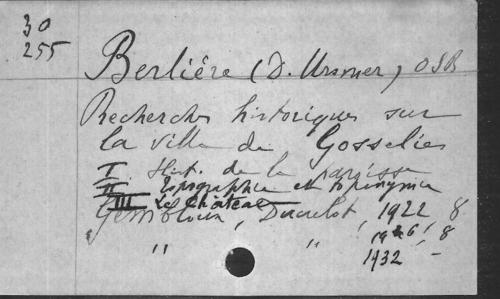 30
255
Berlière (D. Ursmer) OSB
Recherches historiques sur
la ville de Gosselies
I. Hist. de la paroisse
II Topographie et toponymie
III Le Château
Gembloux, Duculot, 1922, 8
" " 1926, 8
1932 -